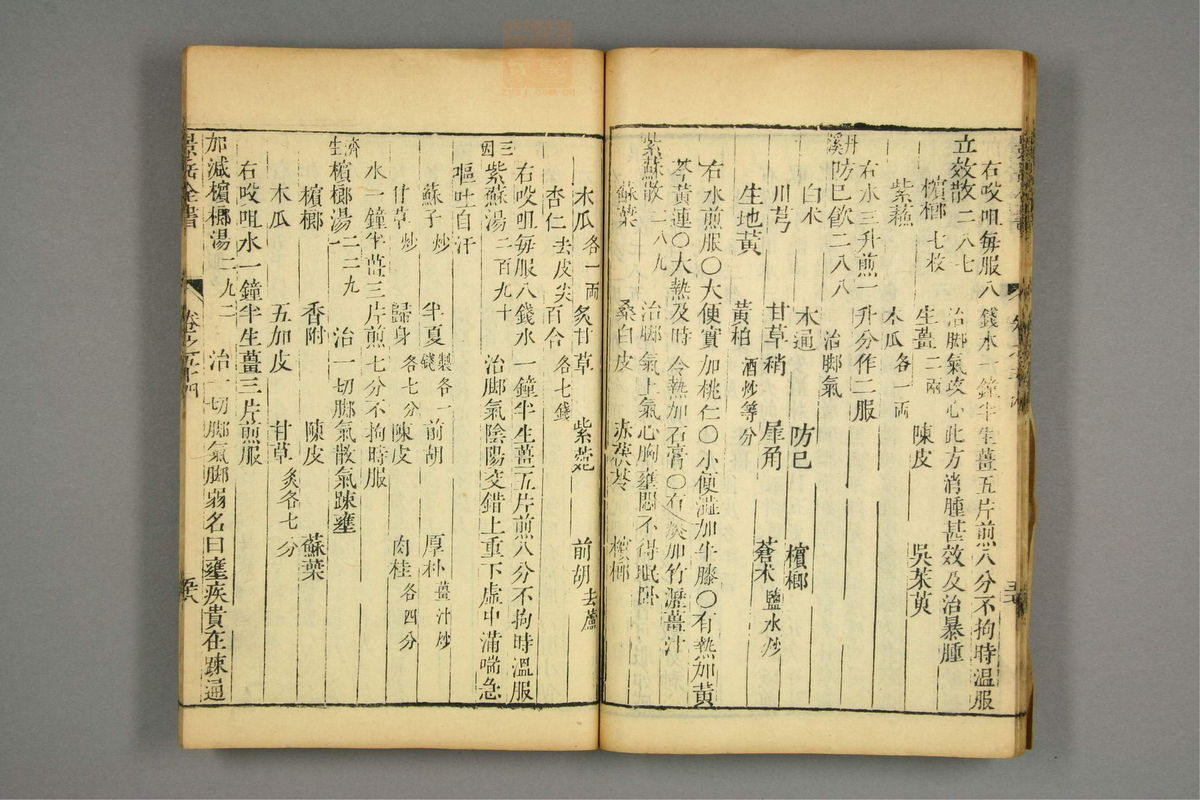 右㕮咀每服八錢水一鐘半生薑五片煎八分不拘時溫服
立效散二八七 治脚氣攻心此方消腫甚效及治暴腫
檳榔七枚 生薑二兩 陳皮 吳茱萸
紫蘇 木瓜各一両
右水三升煎一升分作二服
丹溪防巳飲二八八 治脚氣
白术 木通 防巳 檳榔
川芎 甘草稍 犀角 蒼术鹽水炒
生地黃 黃栢酒炒等分
右水煎服〇大便實加桃仁〇小便澁加牛膝〇有熱加黃
芩黃連〇大熱及時令熱加石膏〇有痰加竹瀝薑汁
紫蘇散二八九 治脚氣上氣心胸壅悶不得眠臥
蘇葉 桑白皮 赤茯苓 檳榔
木瓜各一両 炙甘草 紫菀 前胡去蘆
杏仁去皮尖 百合各七錢
右㕮咀每服八錢水一鐘半生薑五片煎八分不拘時溫服
三因紫蘇湯二百九十 治脚氣陰陽交錯上重下虛中滿喘急
嘔吐自汗
蘇子炒 半夏製各一錢 前胡 厚朴薑汁炒
甘草炒 歸身各七分 陳皮 肉桂各四分
水一鐘半薑三片煎七分不拘時服
濟生檳榔湯二二九一 治一切脚氣散氣踈壅
檳榔 香附 陳皮 蘇葉
木瓜 五加皮 甘草炙各七分
右㕮咀水一鐘半生薑三片煎服
加減檳榔湯二九二 治一切脚氣脚弱名曰壅疾貴在踈通
景岳全書 卷之五十四 五八